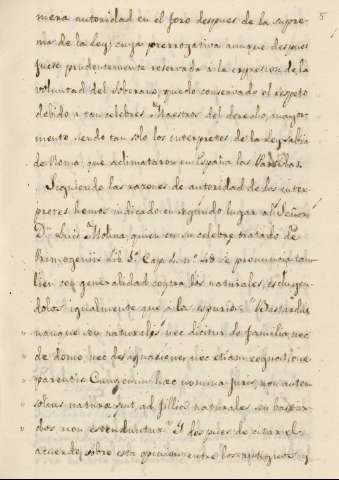 5
mera autoridad en el foro despues de la supre-
ma de la ley; cuya prerrogativa aunque despues
fuese prudentemente reservada á la expresion de la
voluntad del soberano, quedo conservado el respeto
debido á tan celebres Maestros del derecho, mayor-
mente siendo tan solo los interpretes de la ley sabia
de Roma, que aclimataron en España las Partidas.
Siguiendo las razones de autoridad de los inter-
pretes hemos indicado en segundo lugar al Señor
Dn Luis Molina, quien en su celebre tratado de
Primogeniis Lib. 1º Cap. 4. nº 48 se pronuncia tam-
bien con generalidad contra los naturales, escluyen-
dolos igualmente que á los espurios. Bastardi
nanque seu naturales nec dicitur de familia, nec
de domo, nec des ignasiones, nec etiam cognatione
parentis. Cumque hac nomina juris, non autem
solius naturæ sint, ad fillios naturales, seu bastar-
dos non estenduntur. Y despues de citar el
acuerdo sobre esta opinion entre los antiguos, y